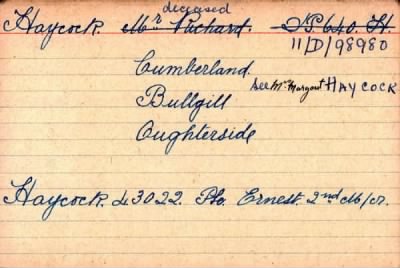 deceased
Haycock. Mr Richard. N.P. 640. H.
11/D/98980
Cumberland.
see Mrs Margaret HAYCOCK
Bullgill
Oughterside
Haycock. 43022. Pte. Ernest. 2nd M/cr.